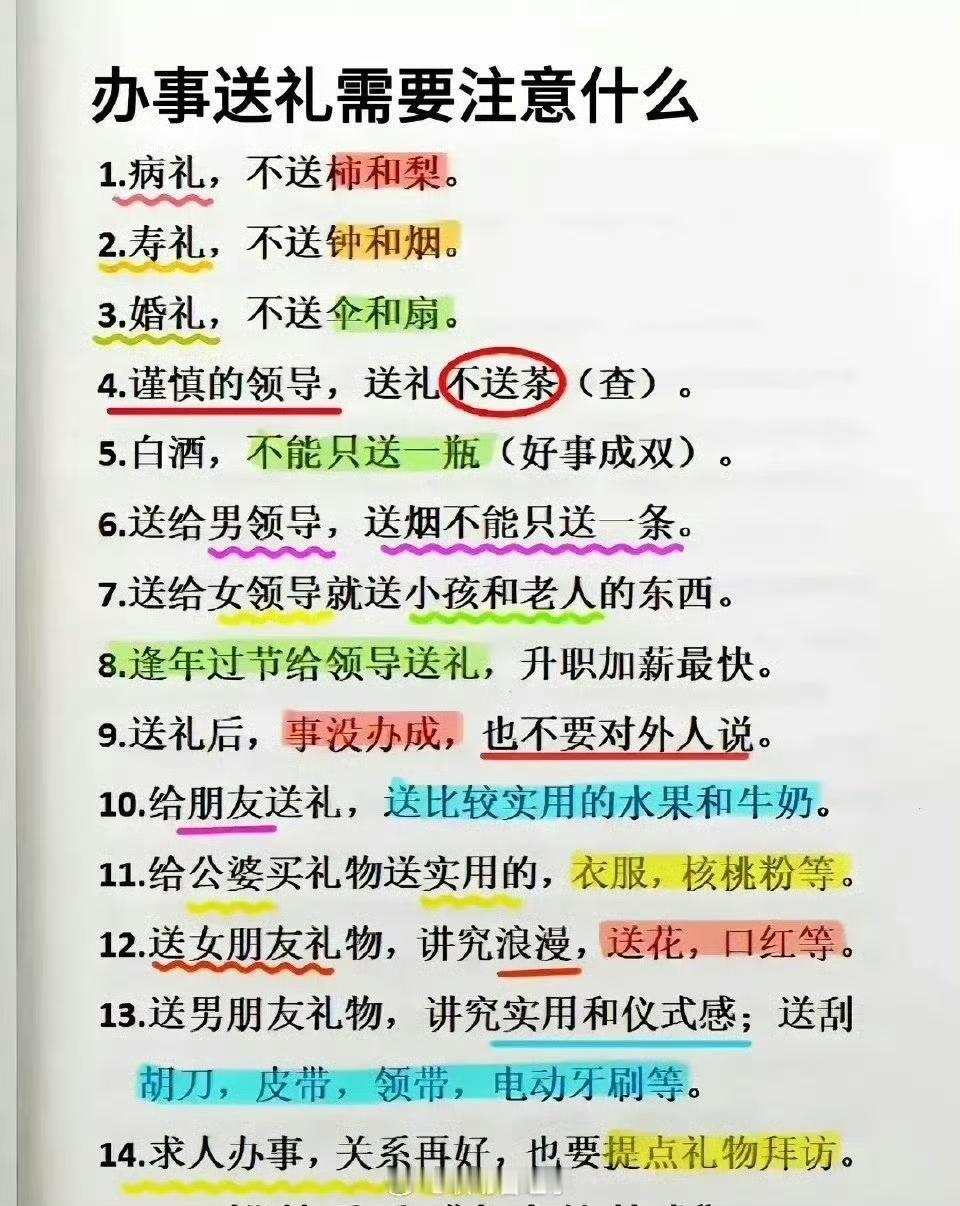 办事送礼需要注意什么
1.病礼，不送柿和梨。
2.寿礼，不送钟和烟。
3.婚礼，不送伞和扇。
4.谨慎的领导，送礼不送茶（查）。
5.白酒，不能只送一瓶（好事成双）。
6.送给男领导，送烟不能只送一条。
7.送给女领导就送小孩和老人的东西。
8.逢年过节给领导送礼，升职加薪最快。
9.送礼后，事没办成，也不要对外人说。
10.给朋友送礼，送比较实用的水果和牛奶。
11.给公婆买礼物送实用的，衣服，核桃粉等。
12.送女朋友礼物，讲究浪漫，送花，口红等。
13.送男朋友礼物，讲究实用和仪式感；送刮
胡刀，皮带，领带，电动牙刷等。
14.求人办事，关系再好，也要提点礼物拜访。